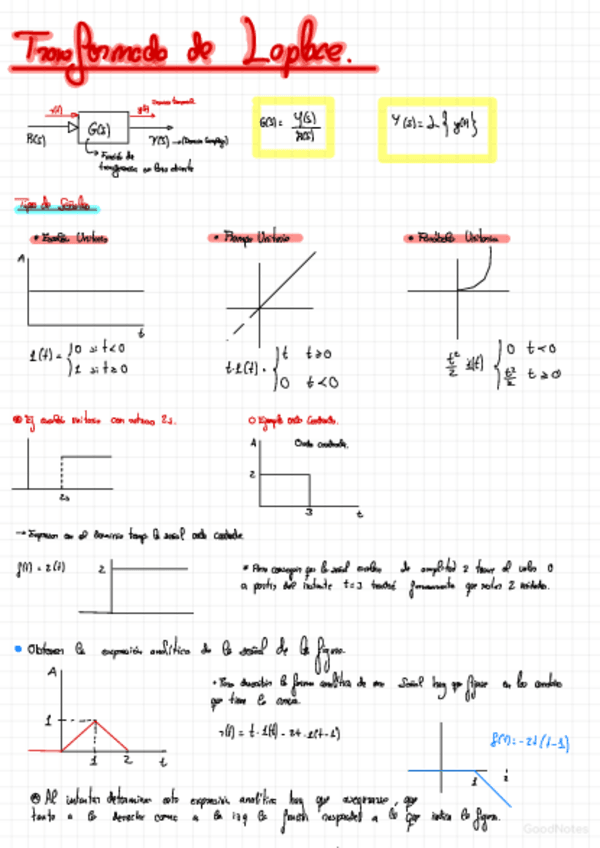 Transformada de Laplace.
r(t) y(t) Dominio temporal
R(s) G(s) Y(s) → (Dominio Complejo)
Función de
transferencia en lazo abierto
G(s) = Y(s) / R(s)
Y(s) = L { y(t) }
Tipo de Señales
• Escalón Unitario
• Rampa Unitaria
• Parábola Unitaria
A
t
1(t) = { 0 si t<0
1 si t≥0
t·1(t) = { t t≥0
0 t<0
t²/2 1(t) { 0 t<0
t²/2 t≥0
Ej escalón unitario con retraso 2s.
2s
○ Ejemplo onda Cuadrada.
A Onda cuadrada.
2
3 t
→ Expresar en el dominio temp. la señal onda cuadrada
f(t) = 2(t)
2
* Para conseguir que la señal escalón de amplitud 2 tome el valor 0
a partir del instante t=3 tendré forzosamente que restar 2 unidades.
• Obtener la expresión analítica de la señal de la figura.
A
1
1 2 t
• Para describir la forma analítica de una señal hay que fijarse en los cambios
que tiene la misma.
r(t) = t·1(t) - 2t·1(t-1)
f(t) = -2t(t-1)
1
Al intentar determinar esta expresión analítica hay que asegurarse, que
tanto a la derecha como a la izq la función responde a lo que indica la figura.
GoodNotes